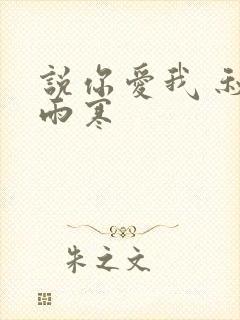 說你愛我
雨寒
朱之文